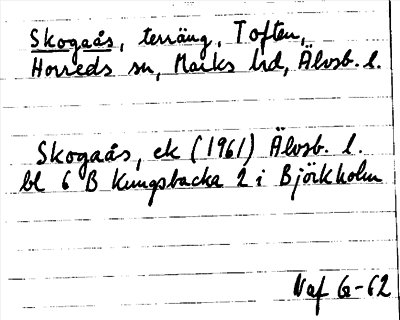 Skogaås, terräng, Toften,
Horreds sn, Marks hd, Älvsb. l.
Skogaås, ek (1961) Älvsb. l.
bl 6 B Kungsbacka 2 i Björkholm
Naf G-62